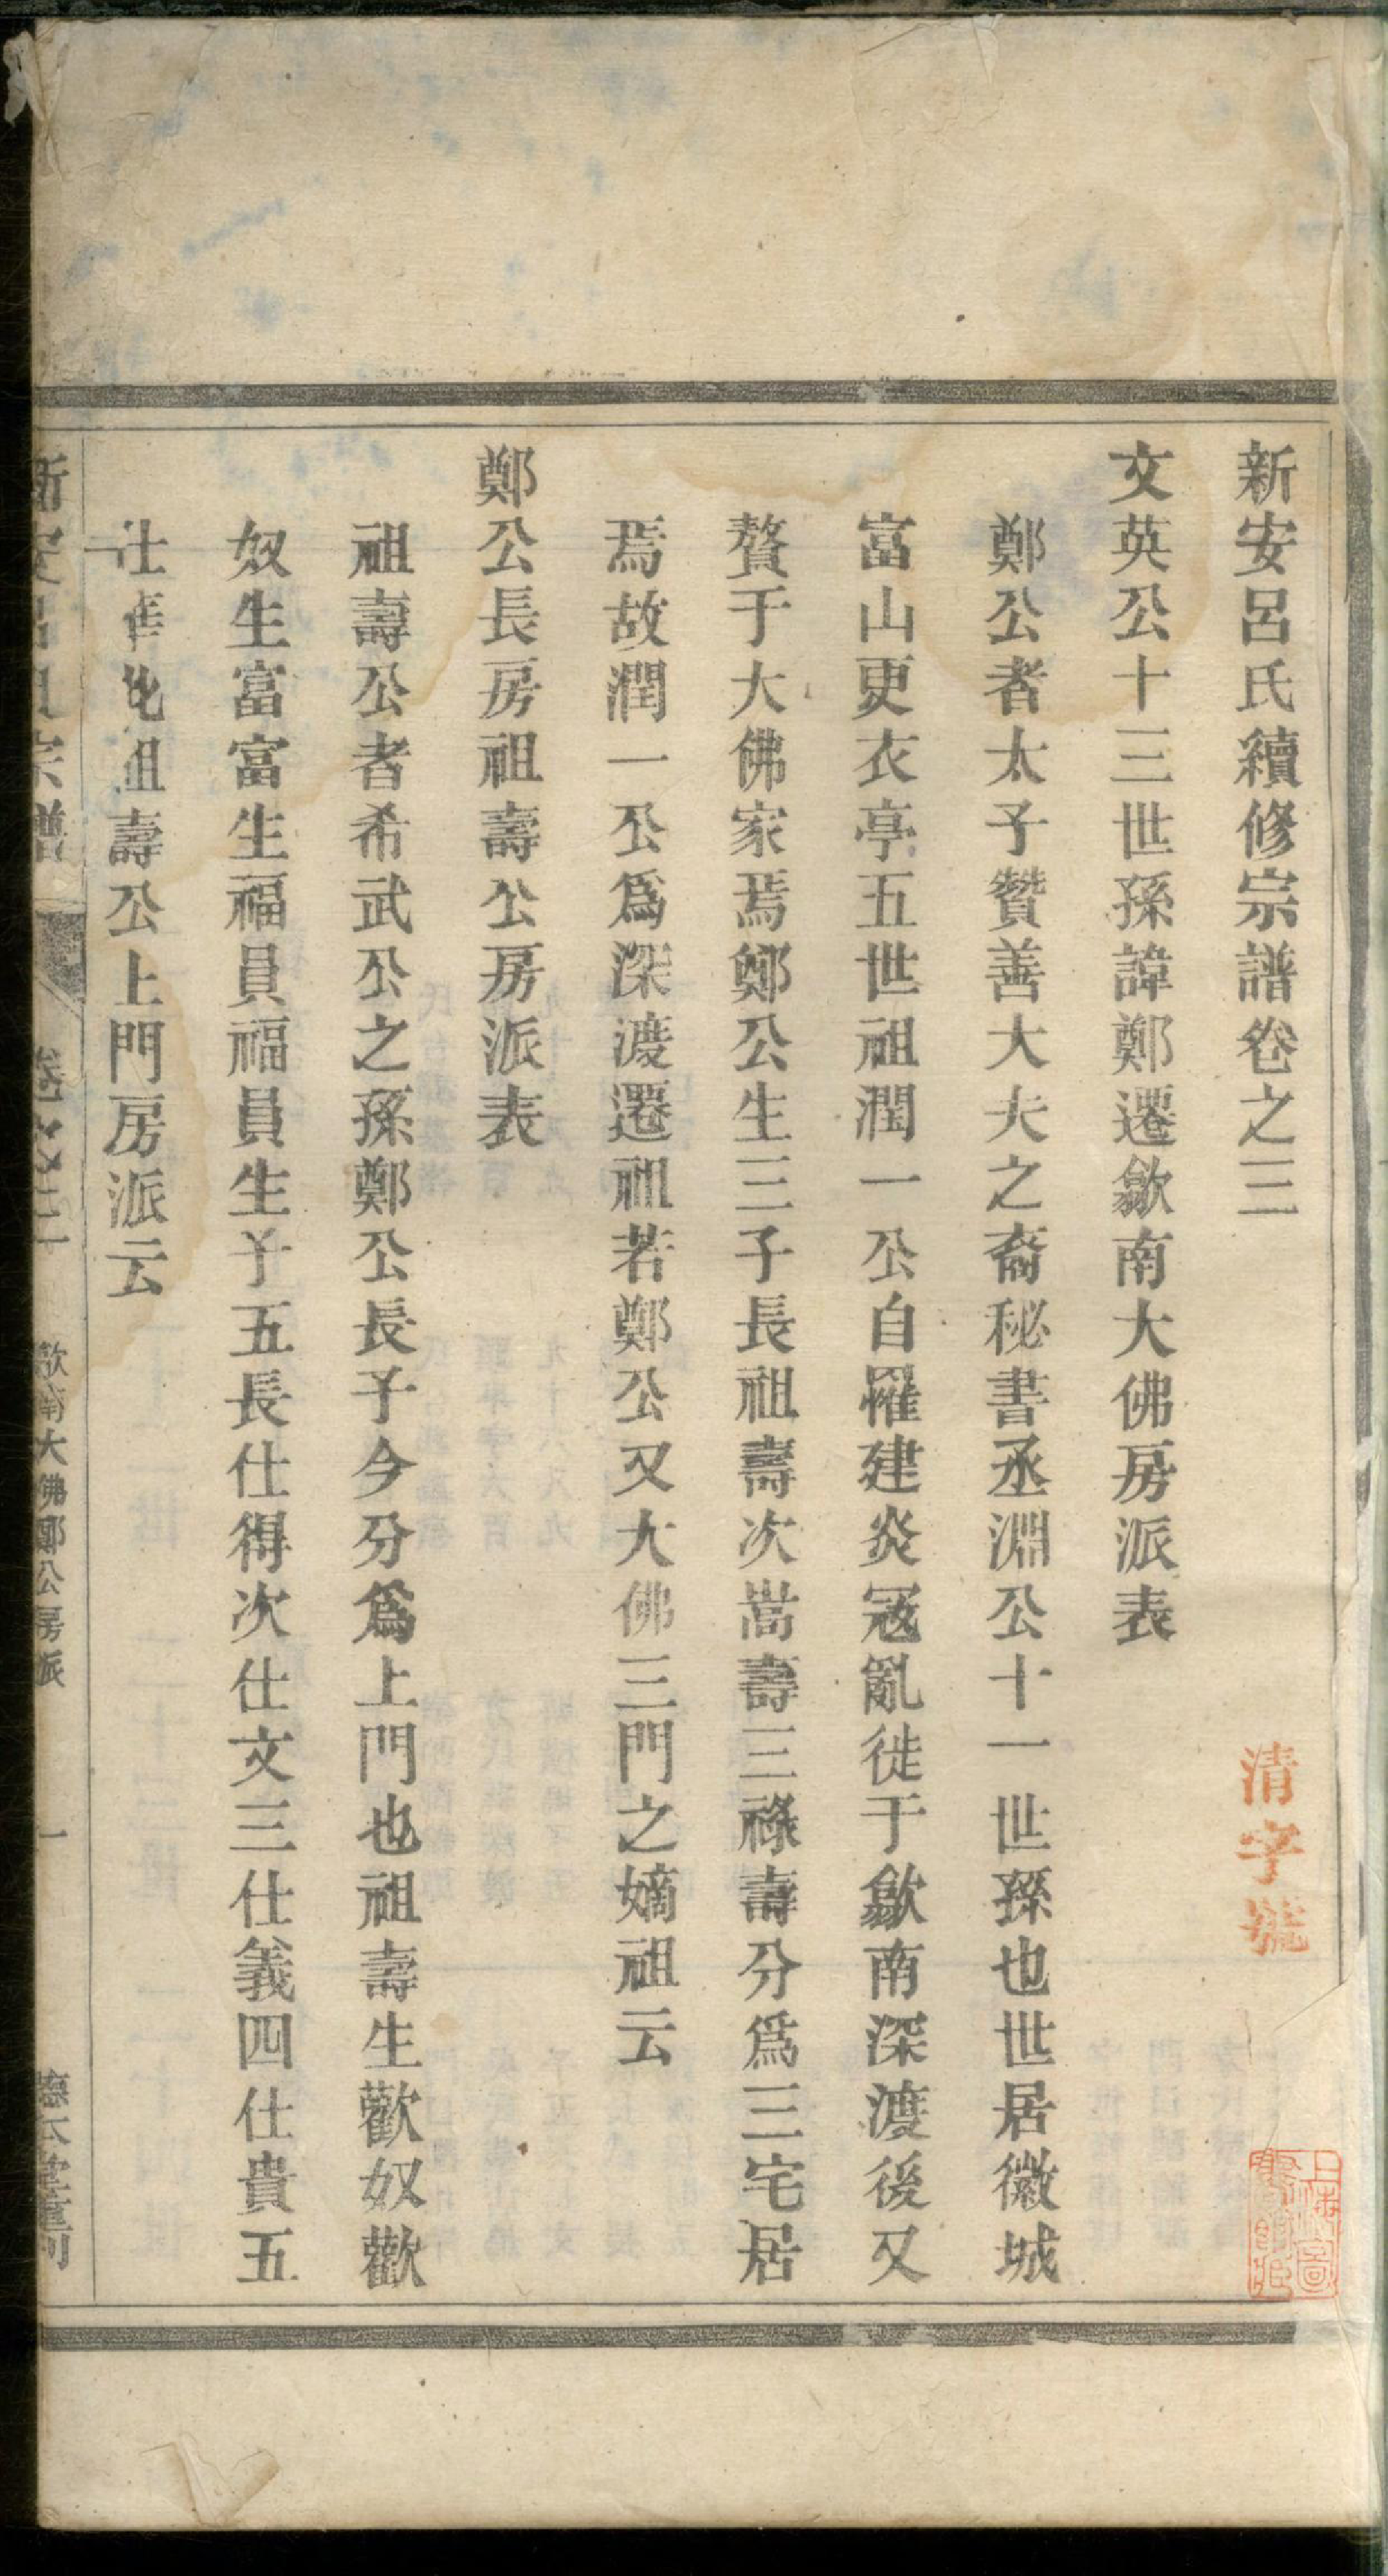 新安呂氏續修宗譜卷之三
清字號
文英公十三世孫諱鄭遷歙南大佛房派表
鄭公者太子贊善大夫之裔秘書丞淵公十一世孫也世居徽城
富山更衣亭五世祖潤一公自罹建炎寇亂徙于歙南深渡後又
贅于大佛家焉鄭公生三子長祖壽次嵩壽三祿壽分爲三宅居
焉故潤一公爲深渡遷祖若鄭公又大佛三門之嫡祖云
鄭公長房祖壽公房派表
祖壽公者希武公之孫鄭公長子今分爲上門也祖壽生歡奴歡
奴生富富生福員福員生子五長仕得次仕文三仕義四仕貴五
仕
祖壽公上門房派云
新安呂氏宗譜
卷之三
歙南大佛鄭公房派
一
德本堂重刊